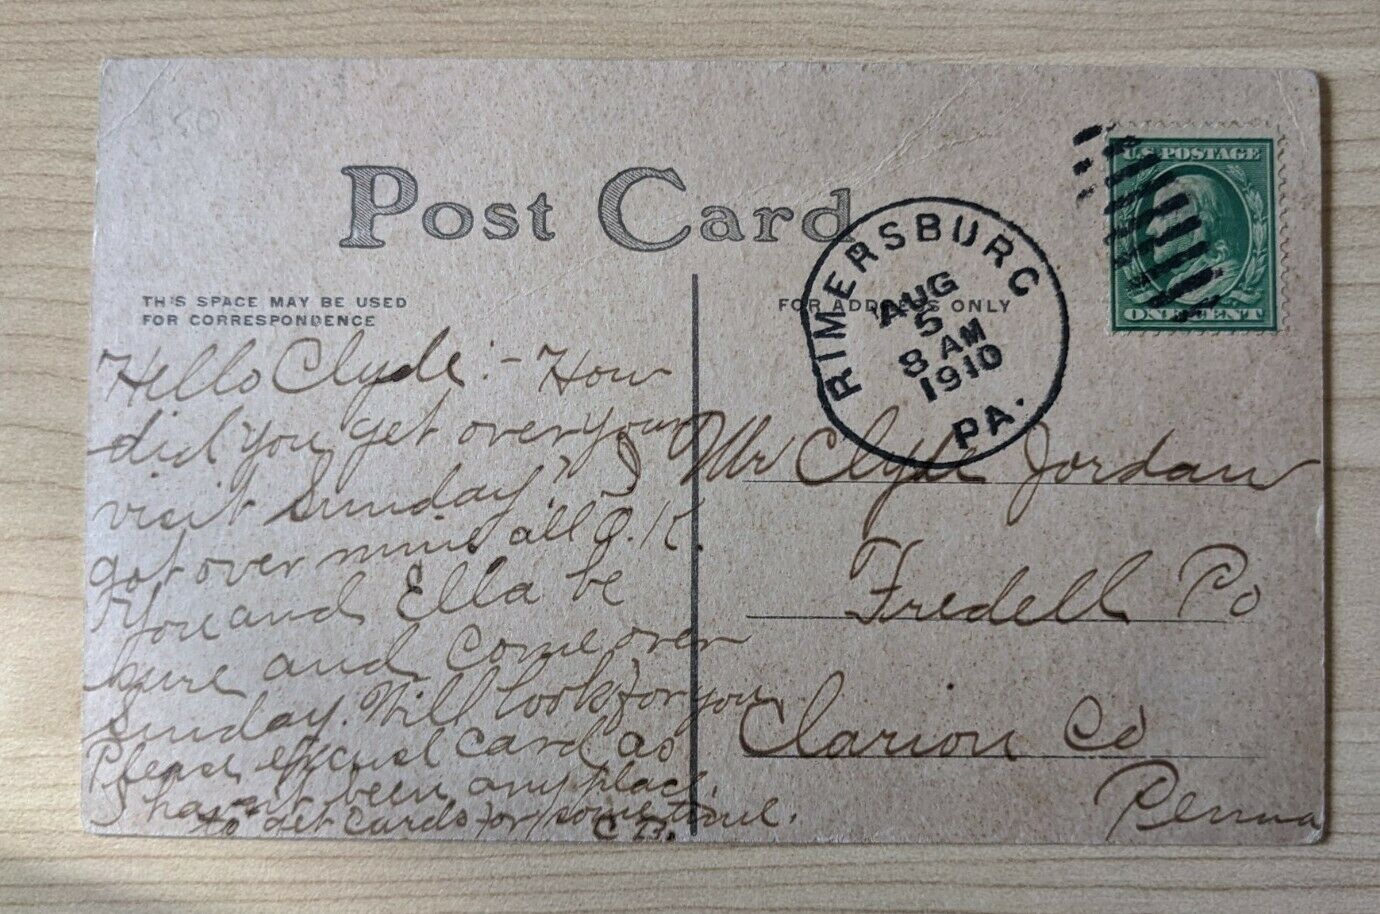 Post Card
THIS SPACE MAY BE USED
FOR CORRESPONDENCE
FOR ADDRESS ONLY
RIMERSBURG
AUG
5
8 AM
1910
PA.
U.S. POSTAGE
ONE CENT
Hello Clyde:- How
did you get over your
visit Sunday? I
got over mine all O.K.
You and Ella be
sure and come over
Sunday. Will look for you
Please excuse card as
I has nt been any place
to get cards for some time.
C B.
Mr Clyde Jordan
Fredell Po
Clarion Co
Penna